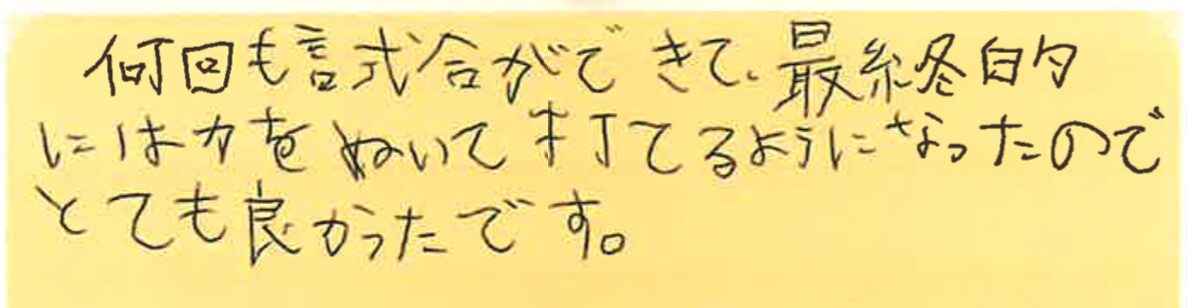 何回も試合ができて、最終的
には力をぬいて打てるようになったので
とても良かったです。